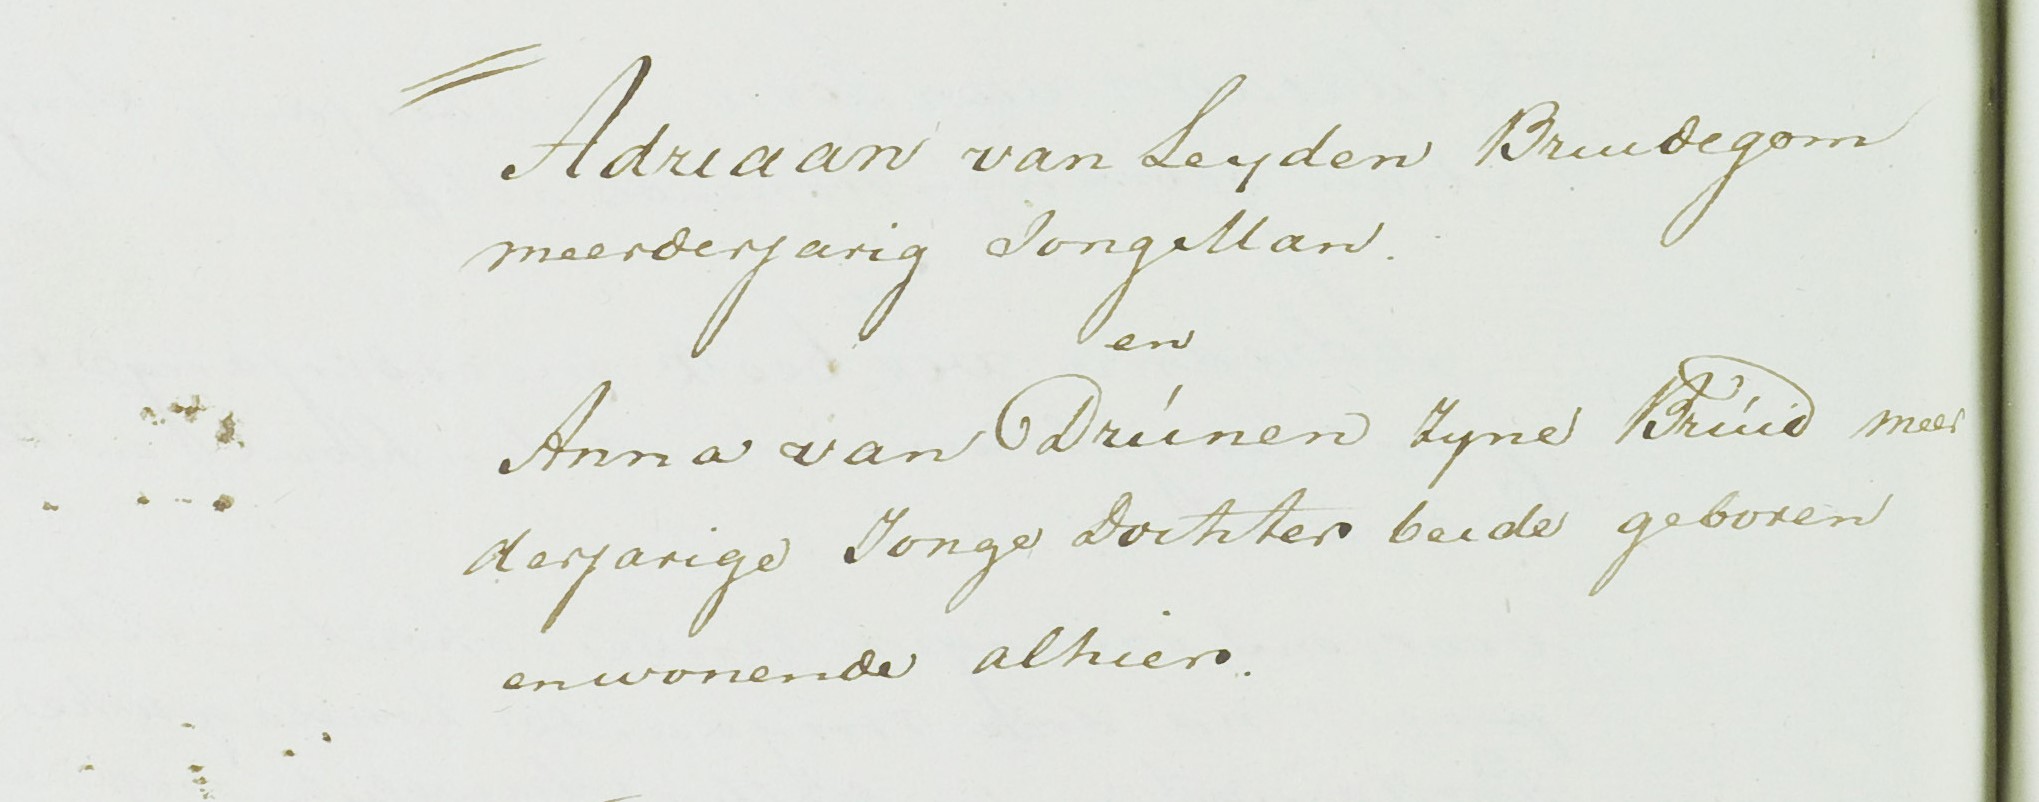 Adriaan van Leyden Bruudegom
meerderjarig JongMan.
en
Anna van Drúnen zyne Brúid meer
derjarige Jonge Dochter beide geboren
enwonende alhier.